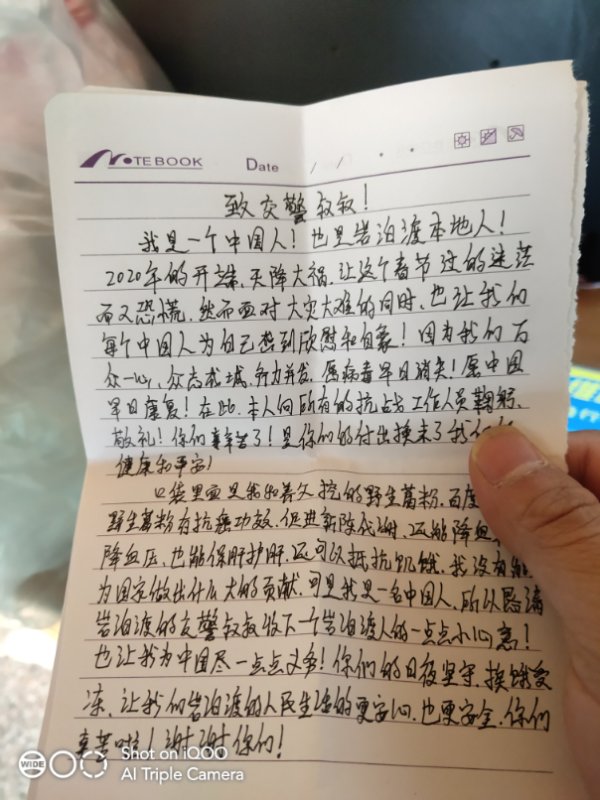 NOTEBOOK Date / /
致交警叔叔！
我是一个中国人！也是岩泊渡本地人！
2020年的开端,天降大祸,让这个春节过的迷茫
而又恐慌,然而面对大灾大难的同时,也让我们
每个中国人为自己感到欣慰和自豪！因为我们万
众一心,众志成城,努力并发,愿病毒早日消失！愿中国
早日康复！在此,本人向所有的抗战工作人员鞠躬、
敬礼！你们辛苦了！是你们的付出换来了我们的
健康和平安！
口袋里面是我和养父挖的野生葛粉,百度
野生葛粉有抗癌功效,促进新陈代谢,还能降血
降血压,也能保肝护肝,还可以抵抗饥饿,我没有能
为国家做出什么大的贡献,可是我是一名中国人,所以恳请
岩泊渡的交警叔叔收下一个岩泊渡人的一点点小心意！
也让我为中国尽一点点义务！你们的日夜坚守,挨饿受
冻,让我们岩泊渡的人民生活的更安心,也更安全,你们
辛苦啦！谢谢你们！
WIDE Shot on iQOO
AI Triple Camera